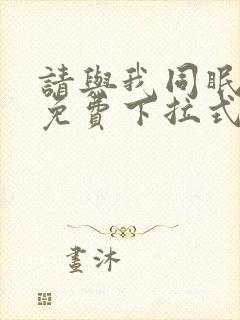 請與我同眠
免費下拉式
畫沐